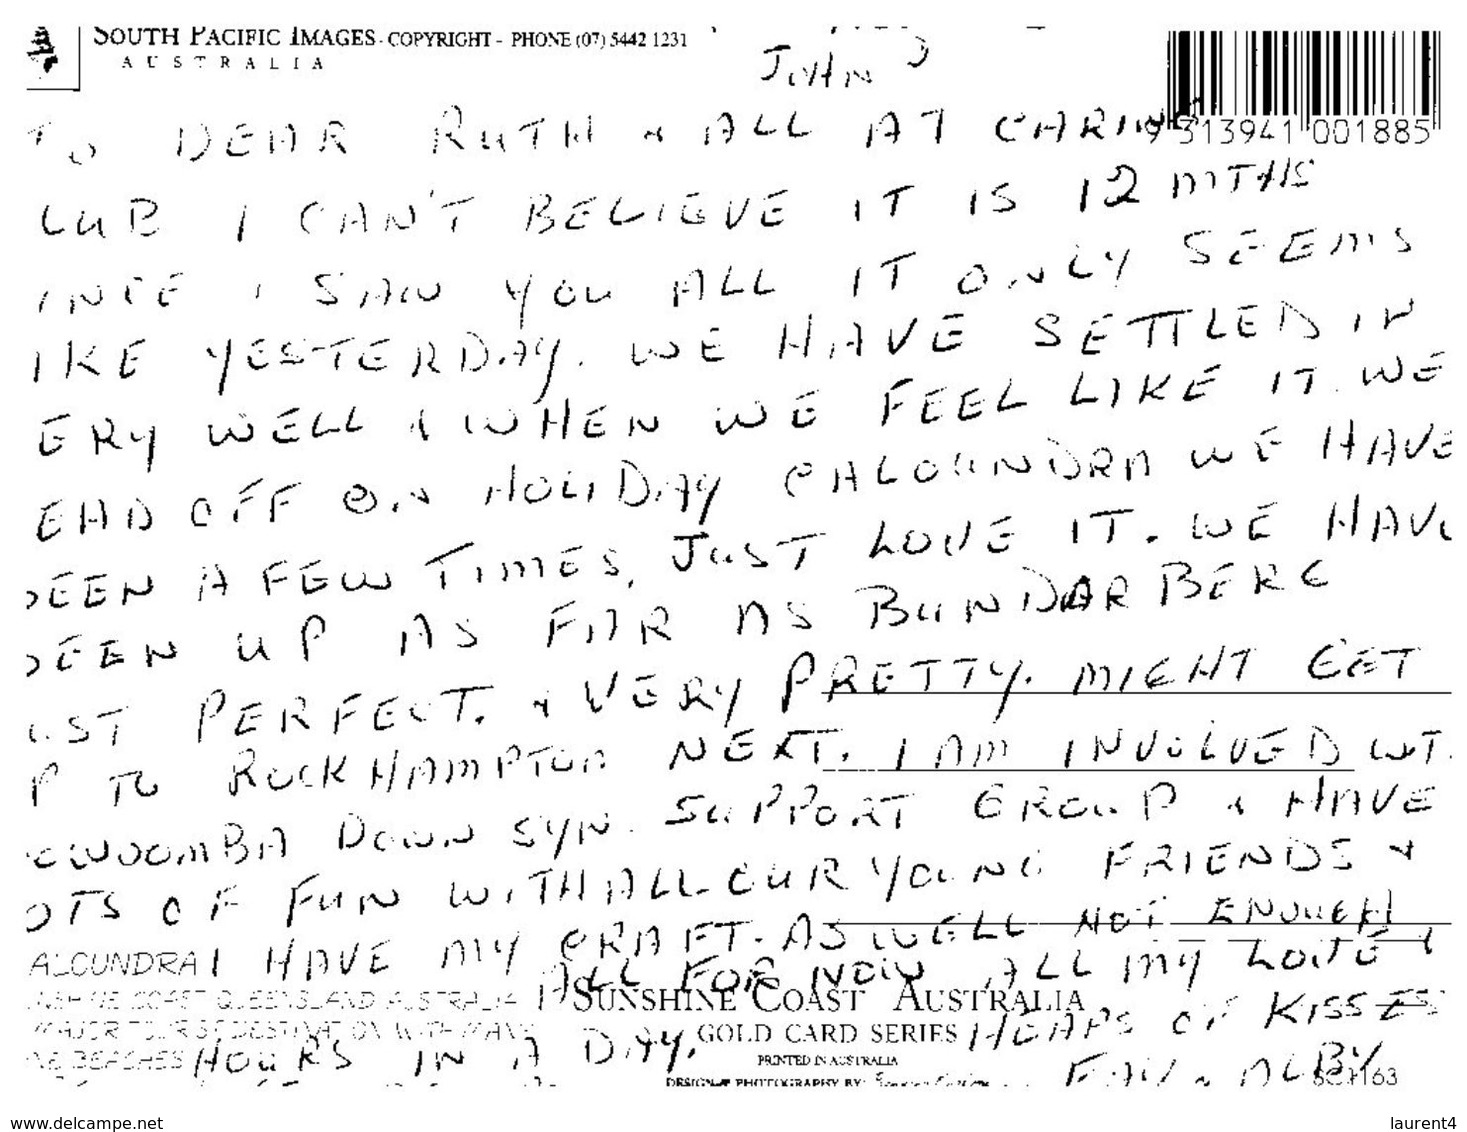 SOUTH PACIFIC IMAGES - COPYRIGHT - PHONE (07) 5442 1231
AUSTRALIA
JOHN
9 313941 001885
TO DEAR RUTH & ALL AT CARING
LUB I CAN'T BELIEVE IT IS 12 MTHS
INCE I SAW YOU ALL IT ONLY SEEMS
IKE YESTERDAY. WE HAVE SETTLED IN
ERY WELL & WHEN WE FEEL LIKE IT. WE
EAD OFF ON HOLIDAY CALOUNDRA WE HAVE
BEEN A FEW TIMES, JUST LOVE IT. WE HAVE
BEEN UP AS FAR AS BUNDARBERG
UST PERFECT. & VERY PRETTY. MIGHT GET
P TO ROCKHAMPTON NEXT. I AM INVOLVED WT.
OWOOMBA DOWN SYN. SUPPORT GROUP & HAVE
OTS OF FUN WITH ALL OUR YOUNG FRIENDS &
I HAVE MY CRAFT. AS WELL NOT ENOUGH
HOURS IN A DAY.
ALL FOR NOW ALL MY LOVE &
HEAPS OF KISSES
FAY & ALBY
ALOUNDRA
NSHINE COAST QUEENSLAND AUSTRALIA
MAJOR TOURIST DESTINATION WITH MANY
NE BEACHES
SUNSHINE COAST AUSTRALIA
GOLD CARD SERIES
PRINTED IN AUSTRALIA
DESIGN & PHOTOGRAPHY BY:
www.delcampe.net
laurent4